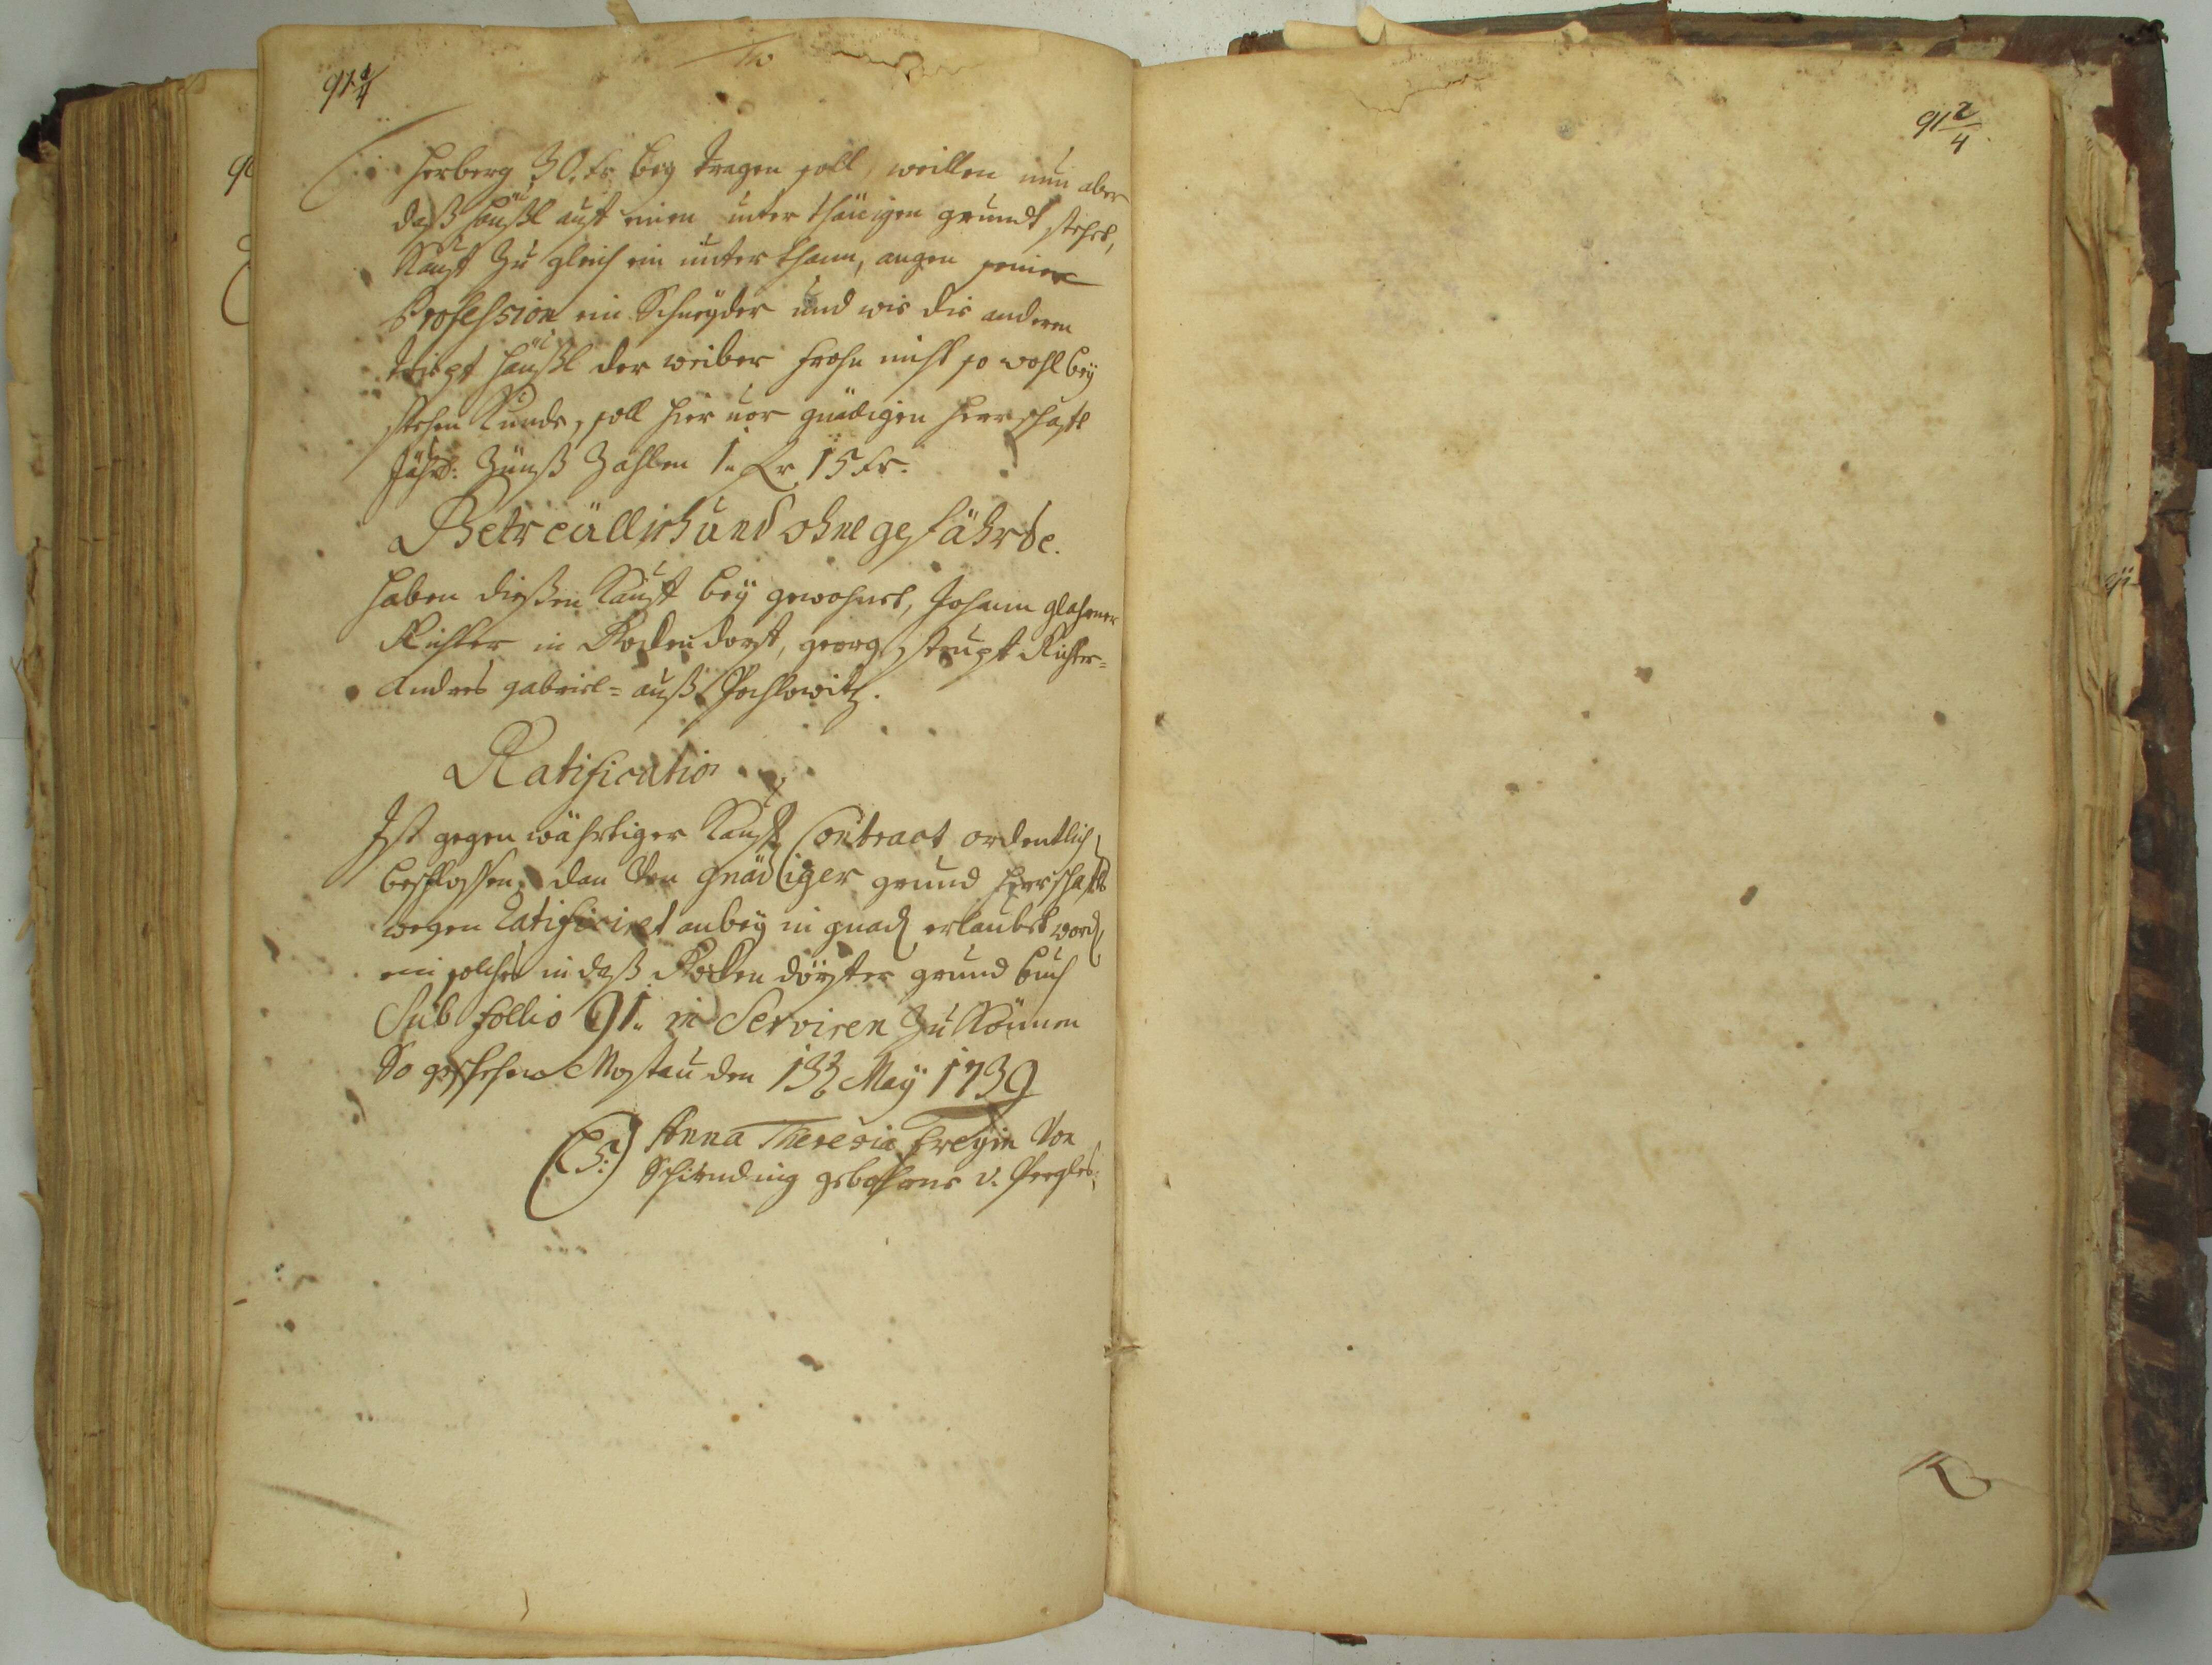 91 1/4
Herberg 30. kr. beÿ tragen soll, weillen nun aber
daß häußl auff einen unter thänigen grundt stehet,
Kauft Zu gleich ein unter thann, angen seiner
Profession ein Schneÿder und wie die anderen
häußl der weiber frohn nicht so wohl beÿ
stehen Kunde, soll hier vor gnädigen Herrschaft
Jährl: Zünß Zahlen 1. fr. 15 kr.
Getreüllich und ohne gefährde.
Haben dießen Kauff beÿ gewohnet, Johann glaßner
Richter in Rockendorff, georg Richter=
Andres gabriel= auß Pochlowitz.
Ratification
Ist gegen währtiger Kauff Contract ordentlich
beschlossen, dan Von gnädiger grund Herrschafft
wegen Ratificiret anbeÿ in gnad erlaubet word,
ein solches in daß Rocken dörffer grund buch
Sub follio 91. in Seriren Zu Können
So geschehen Mostau den 13 Maÿ 1739
(LS:) Anna Theresia Freÿin Von
Schirnding gebohrne v. Perglas
91 2/4